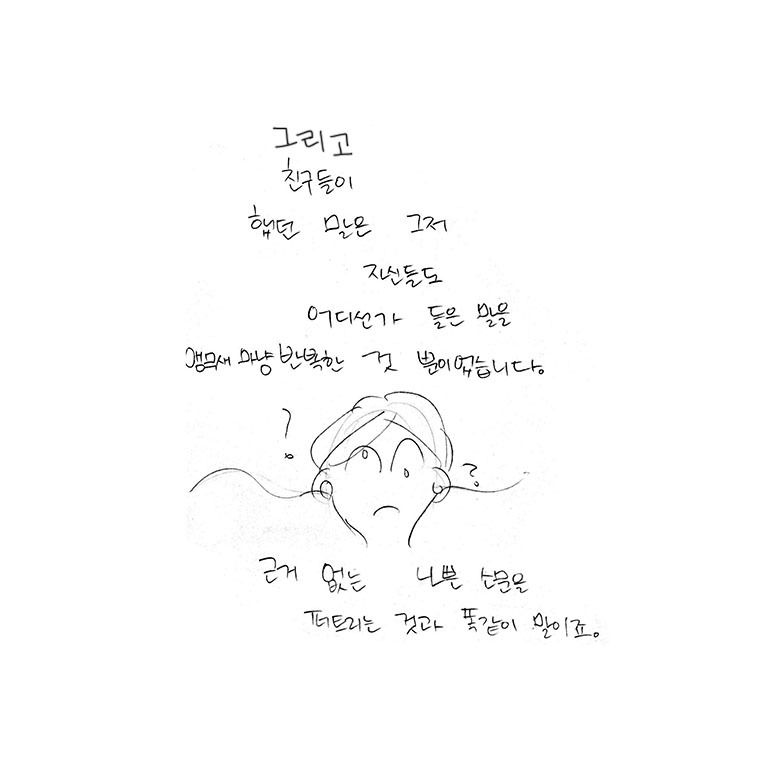 그리고
친구들이
했던 말은 그저
자신들도
어디선가 들은 말을
앵무새 마냥 반복한 것 뿐이었습니다.
?
?
근거 없는 나쁜 소문을
퍼트리는 것과 똑같이 말이죠.